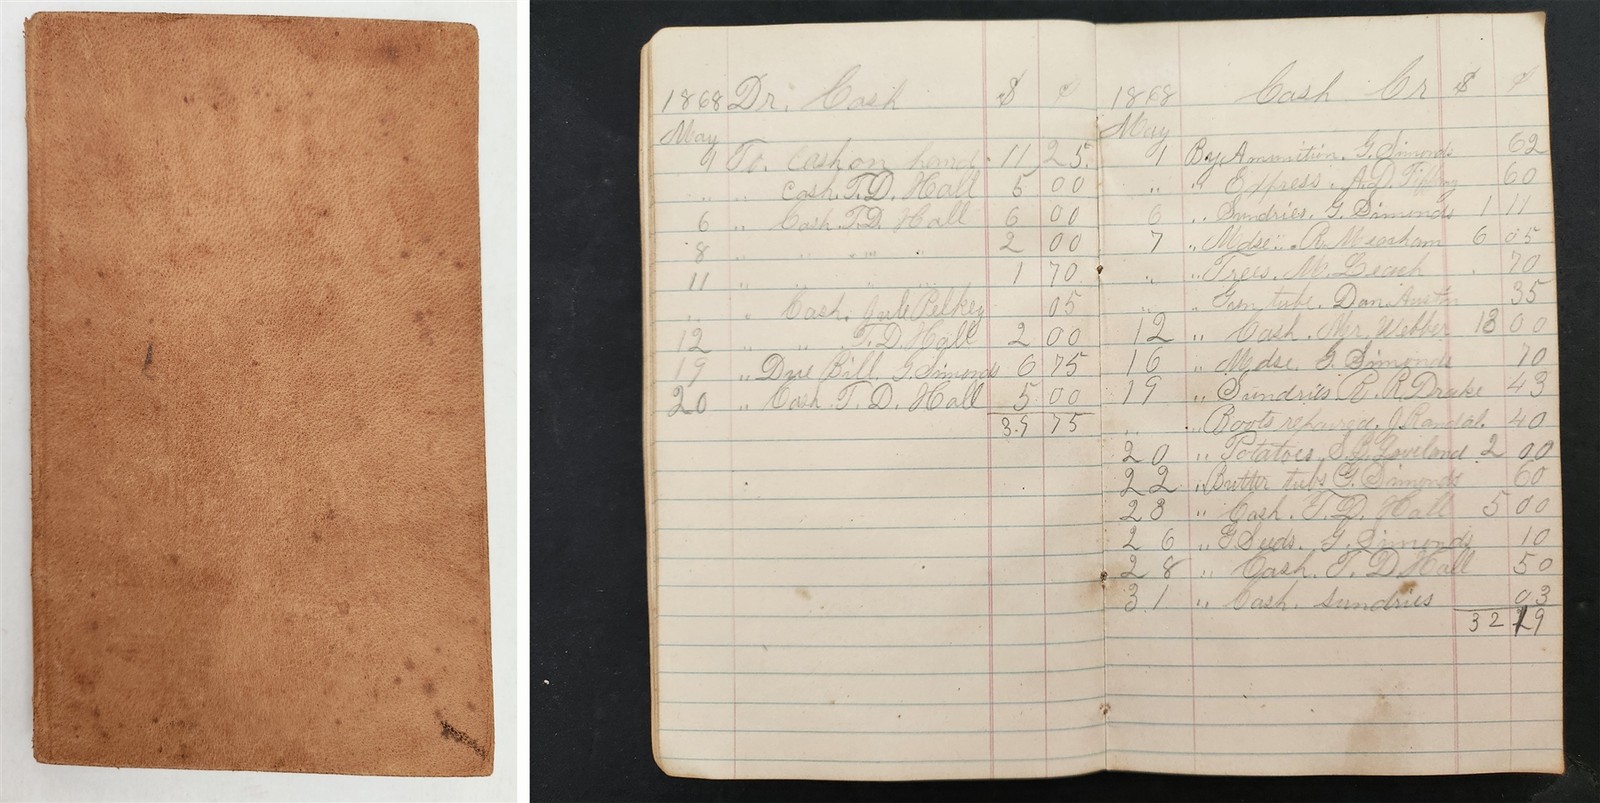 1868 Dr. Cash $ ¢
May
1 To. Cash on hand. 11 25.
" " Cash. T. D. Hall 5 00
6 " Cash. T. D. Hall 6 00
8 " " " " 2 00
11 " " " " 1 70
" " Cash. Pelkey 05
12 " " T. D. Hall 2 00
19 " Due Bill. G. Simonds 6 75
20 " Cash. T. D. Hall 5 00
39 75
1868 Cash Cr $ ¢
May
1 By Ammition. G. Simonds 62
" " Express. A. D. 60
6 " Sundries. G. Simonds 1 11
7 " Mdse. " R. Meacham 6 05
" " Trees. M. Leach 70
" " Gun tube. Dan. Austin 35
12 " Cash. Mr. Webber 13 00
16 " Mdse. G. Simonds 70
19 " Sundries R. R. Drake 43
" " Boots repaired. J. Randal. 40
20 " Potatoes. Loveland 2 00
22 " Butter tubs G. Simonds 60
23 " Cash. T. D. Hall 5 00
26 " G. Seeds. G. Simonds 10
28 " Cash. T. D. Hall 50
31 " Cash. Sundries 03
32 19